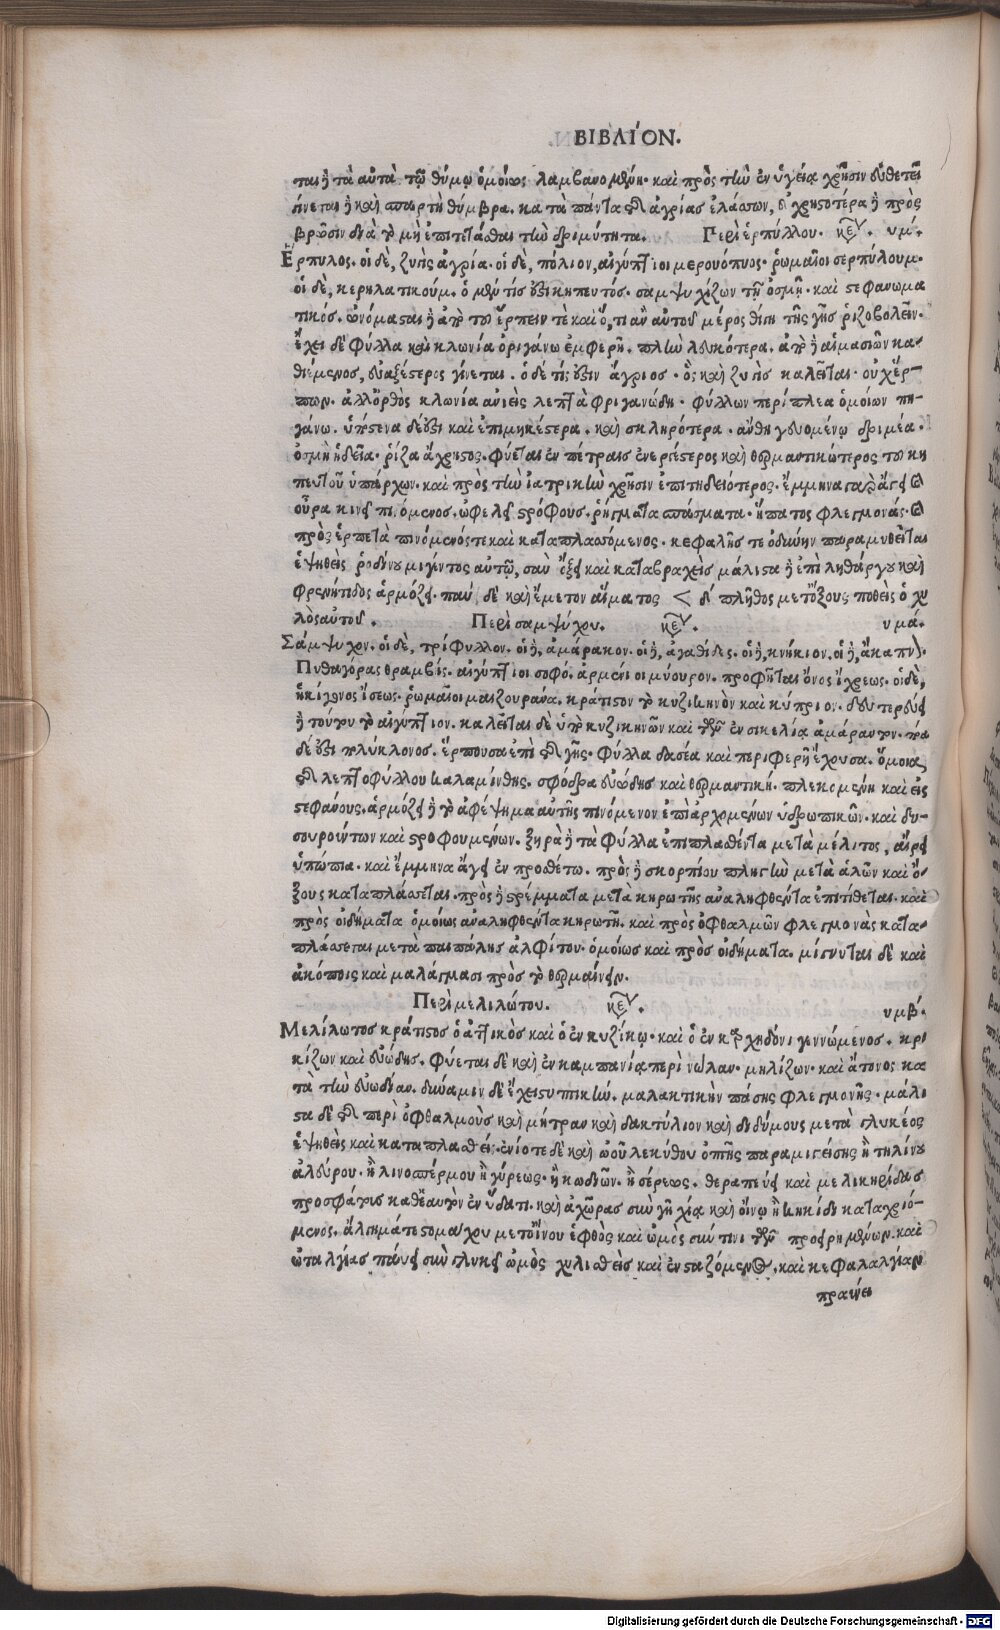 ΒΙΒΛΙ´ΟΝ.
ται ἢ τὰ αὐτὰ τῷ θύμῳ ὁμοίως λαμβανομένη. καὶ πρὸς τὴν ἐν ὑγείᾳ χρῆσιν εὐθετεῖ
γίνεται ἢ καὶ σπαρτὴ θύμβρα. κατὰ πάντα τῆς ἀγρίας ἐλάσσων, εὐχρηστέρα ἢ πρὸς
βρῶσιν διὰ τὸ μὴ ἐπιτετάσθαι τὴν δριμύτητα. Περὶ ἑρπύλλου. κεφ. υμ´.
Ἕρπυλος. οἱ δὲ, ζυγὶς ἀγρία. οἱ δὲ, πόλιον, αἰγύπτιοι μερουόπυος. ῥωμαῖοι σερπύλουμ.
οἱ δὲ, κερηλατικούμ. ὁ μέν τίς ἐστι κηπευτός. σαμψυχίζων τῇ ὀσμῇ. καὶ στεφανωμα
τικός. ὠνόμασται ἢ ἀπὸ τοῦ ἕρπειν τὲ καὶ ὅ, τι ἂν αὐτοῦ μέρος θίγῃ τῆς γῆς ῥιζοβολεῖν.
ἔχει δὲ φύλλα καὶ κλωνία ὀριγάνῳ ἐμφερῆ. πλὴν λευκότερα. ἀπὸ ἢ αἱμασιῶν κα-
θιέμενος, εὐαξέστερος γίνεται. ὁ δέ τίς ἐστιν ἄγριος. ὃς καὶ ζυγὶς καλεῖται. οὐχ ἕρ-
πων. ἀλλ᾽ ὀρθὸς κλωνία ἀνιεὶς λεπτὰ φριγανώδη. φύλλων περίπλεα ὁμοίων πη-
γάνῳ. ὑπόστενα δέ ἐστι καὶ ἐπιμηκέστερα. καὶ σκληρότερα. ἄνθη γευομένῳ δριμέα.
ὀσμὴ ἡδεῖα. ῥίζα ἄχρηστος. φύεται ἐν πέτραισ ἐνεργέστερος καὶ θερμαντικώτερος τοῦ κη
πευτοῦ ὑπάρχων. καὶ πρὸς τὴν ἰατρικὴν χρῆσιν ἐπιτηδειότερος. ἔμμηνα γὰρ ἄγει καὶ
οὖρα κινεῖ πινόμενος. ὠφελεῖ στρόφους. ῥήγματα σπάσματα. ἥπατος φλεγμονάς. καὶ
πρὸς ἑρπετὰ πινόμενός τε καὶ καταπλασσόμενος. κεφαλῆς τε ὀδύνην παραμυθεῖται
ἑψηθεὶς ῥοδίνου μιγέντος αὐτῷ, σὺν ὄξει καὶ καταβραχεὶς μάλιστα ἢ ἐπὶ ληθάργου καὶ
φρενήτιδος ἁρμόζει. παύει δὲ καὶ ἔμετον αἵματος < δ´ πλῆθος μετ᾽ ὄξους ποθεὶς ὁ χυ
λὸς αὐτοῦ. Περὶ σαμψύχου. κεφ. υμά.
Σάμψυχον. οἱ δὲ, τρίφυλλον. οἱ ἢ, ἀμάρακον. οἱ ἢ, ἀγαθίδες. οἱ ἢ, κνήκιον. οἱ ἢ, ἄκαπνον.
Πυθαγόρας θραμβίς. αἰγύπτιοι σοφό. ἀρμένιοι μύουρον. προφῆται ὄνος ἴχρεως. οἱ δὲ,
ἡκίχενος ἴσεως. ῥωμαῖοι μαιζουράνα. κράτιστον τὸ κυζικηνὸν καὶ κύπριον. δευτερεύει
ἢ τούτου τὸ αἰγύπτιον. καλεῖται δὲ ὑπὸ κυζικηνῶν καὶ τῶν ἐν σικελίᾳ ἀμάρακον. πόα
δέ ἐστι πολύκλωνος. ἕρπουσα ἐπὶ τῆς γῆς. φύλλα δασέα καὶ περιφερῆ ἔχουσα. ὅμοια
τῆς λεπτοφύλλου καλαμίνθης. σφόδρα εὐώδης καὶ θερμαντική. πλεκομένη καὶ εἰς
στεφάνους. ἁρμόζει ἢ τὸ ἀφέψημα αὐτῆς πινόμενον ἐπὶ ἀρχομένων ὑδρωπικῶν. καὶ δυ-
σουρούντων καὶ στροφουμένων. ξηρὰ ἢ τὰ φύλλα ἐπιπλασθέντα μετὰ μέλιτος, αἴρει
ὑπώπια. καὶ ἔμμηνα ἄγει ἐν προσθέτῳ. πρὸς ἢ σκορπίου πληγὴν μετὰ ἁλῶν καὶ ὄ-
ξους καταπλάσσεται. πρὸς ἢ στρέμματα μετὰ κηρωτῆς ἀναληφθέντα ἐπιτίθεται. καὶ
πρὸς οἰδήματα ὁμοίως ἀναληφθέντα κηρωτῇ. καὶ πρὸς ὀφθαλμῶν φλεγμονὰς κατα-
πλάσσεται μετὰ παιπάλης ἀλφίτου. ὁμοίως καὶ πρὸς οἰδήματα. μίγνυται δὲ καὶ
ἀκόποις καὶ μαλάγμασι πρὸς τὸ θερμαίνειν.
Περὶ μελιλώτου. κεφ. υμβ´.
Μελίλωτος κράτιστος ὁ ἀττικὸς καὶ ὁ ἐν κυζίκῳ. καὶ ὁ ἐν καρχηδόνι γεννώμενος. κρο
κίζων καὶ εὐώδης. φύεται δὲ καὶ ἐν καμπανίᾳ περὶ νώλαν. μηλίζων. καὶ ἄτονος κα
τὰ τὴν εὐωδίαν. δύναμιν δὲ ἔχει στυπτικήν. μαλακτικὴν πάσης φλεγμονῆς. μάλι
στα δὲ τῆς περὶ ὀφθαλμοὺς καὶ μήτραν καὶ δακτύλιον καὶ διδύμους μετὰ γλυκέος
ἑψηθεὶς καὶ καταπλασθείς. ἐνίοτε δὲ καὶ ὠοῦ λεκύθου ὀπτῆς παραμιγείσης ἢ τηλίνου
ἀλεύρου. ἢ λινοσπέρμου ἢ γύρεως. ἢ κωδιῶν. ἢ σέρεως. θεραπεύει καὶ μελικηρίδας
προσφάτους καθ᾽ ἑαυτὸν ἐν ὕδατι. καὶ ἀχῶρας σὺν γῇ χίᾳ καὶ οἴνῳ ἢ κηκίδι καταχριό-
μενος. ἄλγημά τε στομάχου μετ᾽ οἴνου ἑφθὸς καὶ ὠμὸς σύν τινι τῶν προειρημένων. καὶ
ὠταλγίας παύει σὺν γλυκεῖ ὠμὸς χυλισθεὶς καὶ ἐνσταζόμενος, καὶ κεφαλαλγίαν
πραΰνει
Digitalisierung gefördert durch die Deutsche Forschungsgemeinschaft - DFG